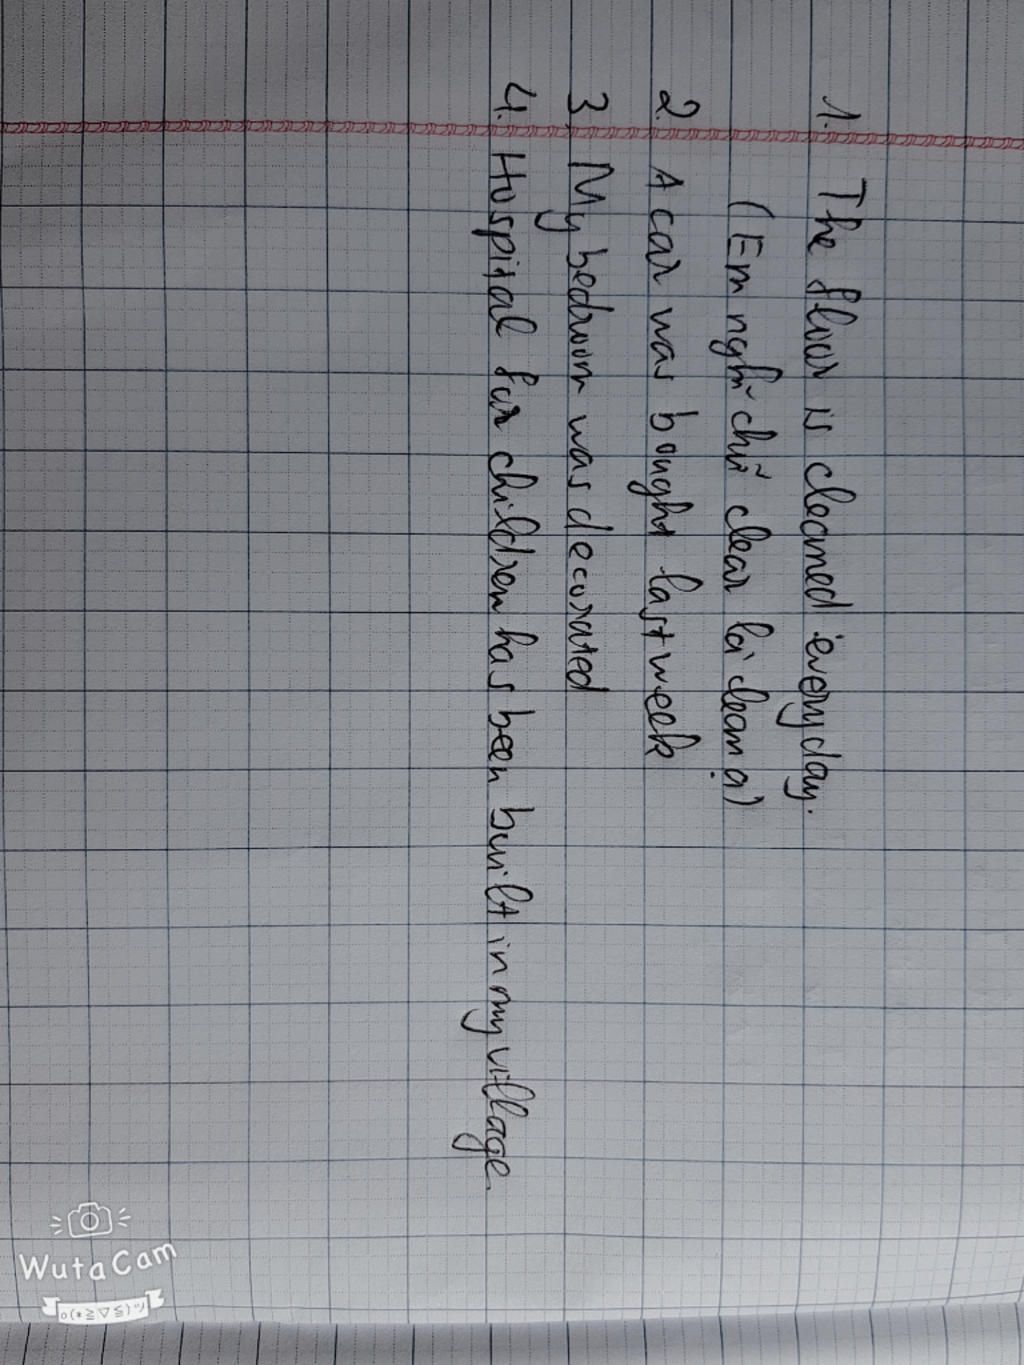 1. The floor is cleaned everyday.
(Em nghĩ chữ clear là clean ạ)
2. A car was bought last week
3 My bedroom was decorated
4. Hospital for children has been built in my village.
WutaCam
o(*≧▽≦)ツ